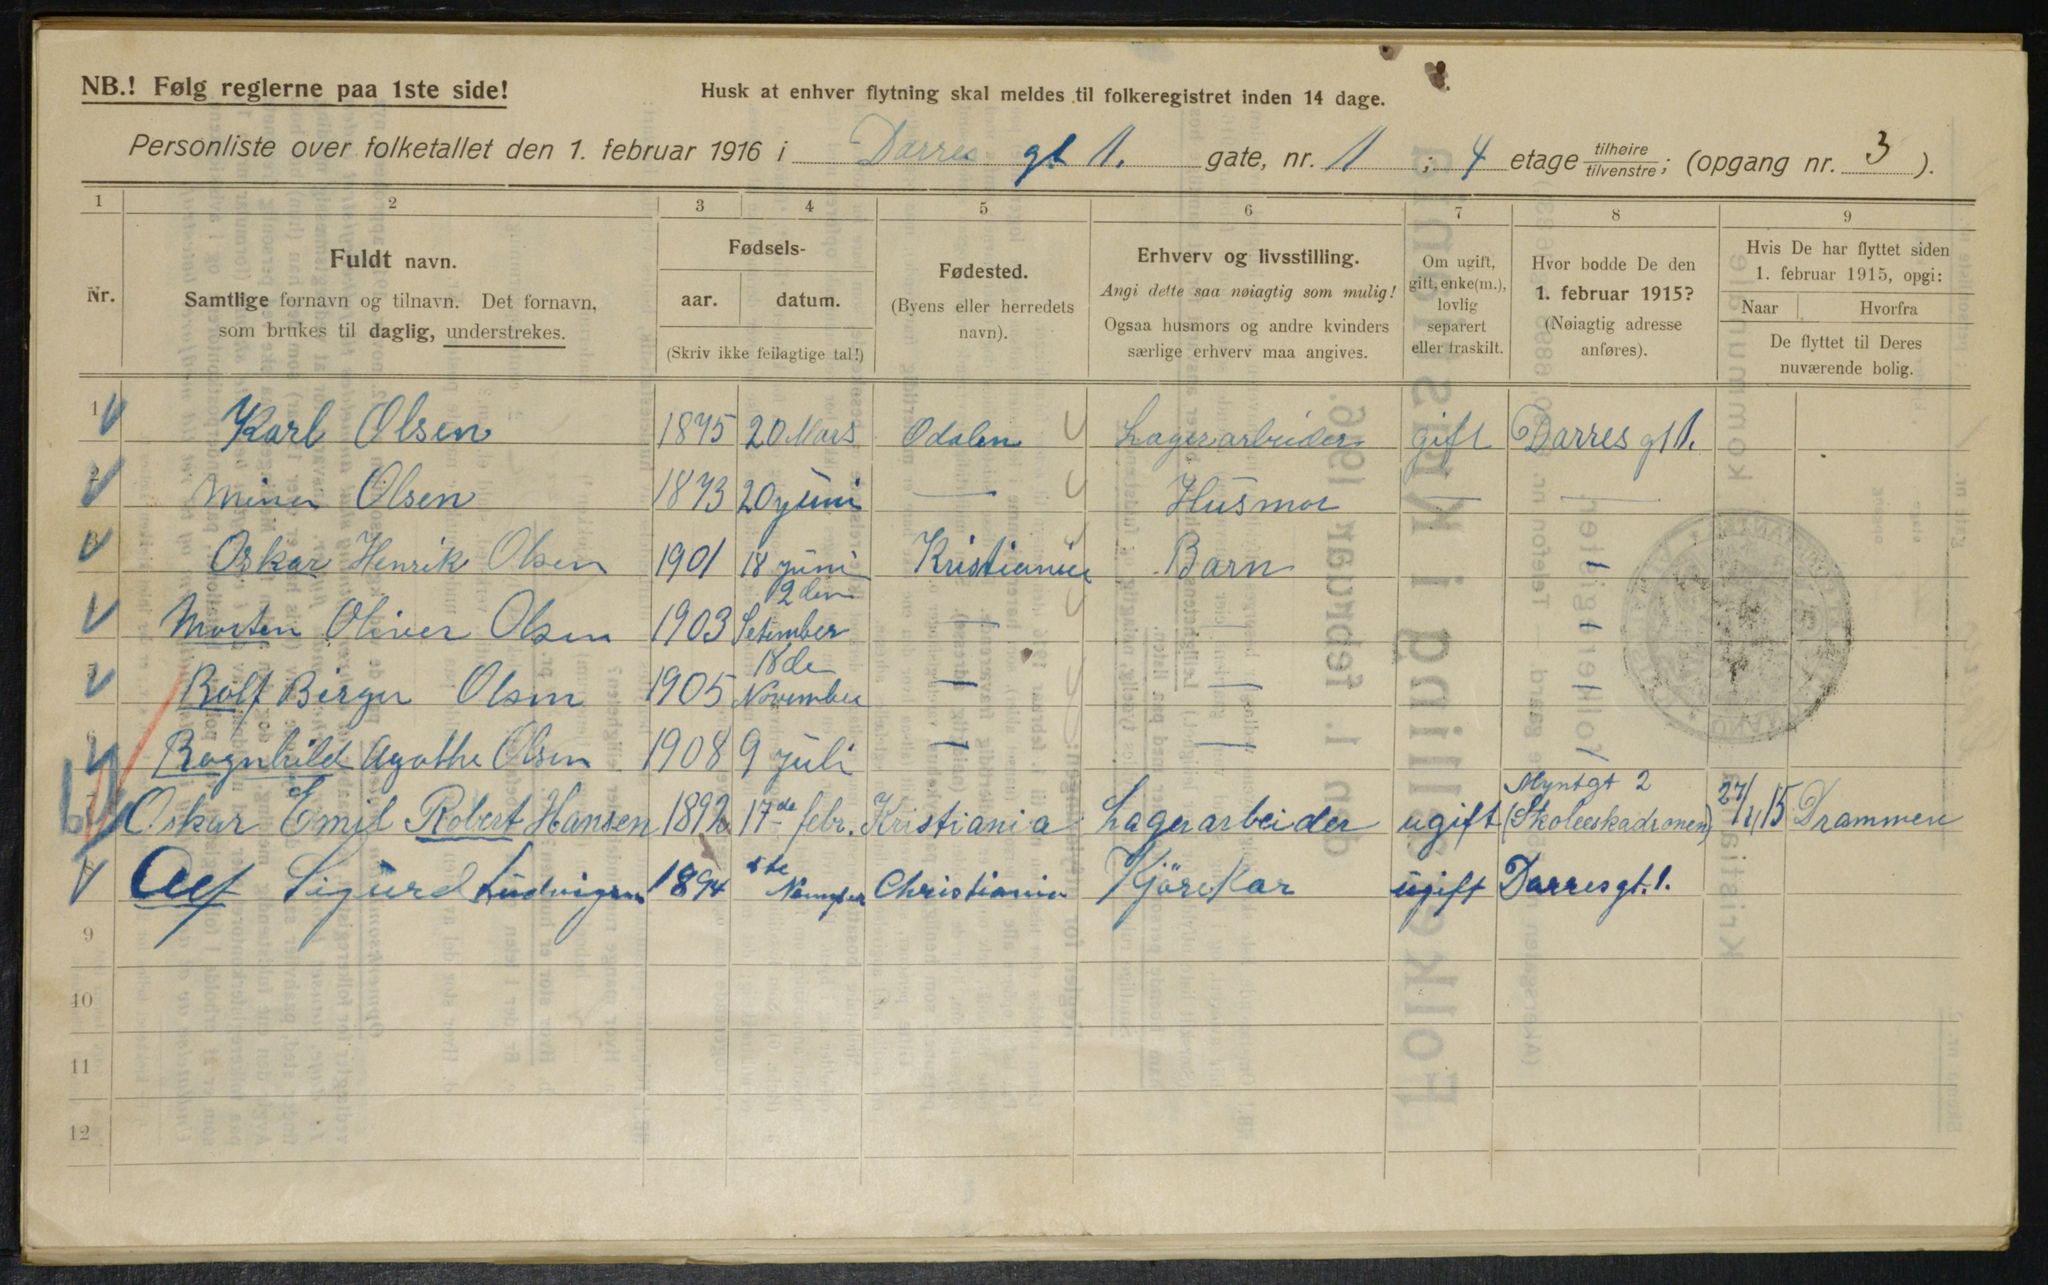 NB.! Følg reglerne paa 1ste side!
Husk at enhver flytning skal meldes til folkeregistret inden 14 dage.
Personliste over folketallet den 1. februar 1916 i Darres gt 1. gate, nr. 1 ; 4 etage tilhøire/tilvenstre; (opgang nr. 3 ).
1 2 3 4 5 6 7 8 9
Nr.
Fuldt navn.
Samtlige fornavn og tilnavn. Det fornavn,
som brukes til daglig, understrekes.
Fødsels-
aar. datum.
(Skriv ikke feilagtige tal!)
Fødested.
(Byens eller herredets
navn).
Erhverv og livsstilling.
Angi dette saa nøiagtig som mulig!
Ogsaa husmors og andre kvinders
særlige erhverv maa angives.
Om ugift,
gift, enke(m.),
lovlig
separert
eller fraskilt.
Hvor bodde De den
1. februar 1915?
(Nøiagtig adresse
anføres).
Hvis De har flyttet siden
1. februar 1915, opgi:
Naar Hvorfra
De flyttet til Deres
nuværende bolig.
1 Karl Olsen 1875 20 Mars Odalen Lagerarbeider gift Darres gt 1.
2 Olsen 1873 20 juni — Husmor — —
3 Oskar Henrik Olsen 1901 18 juni Kristiania Barn
4 Morten Oliver Olsen 1903 2den Setember — —
5 Rolf Berger Olsen 1905 18de November — —
6 Ragnhild Agathe Olsen 1908 9 juli — —
7 Oskar Emil Robert Hansen 1892 17de febr. Kristiania Lagerarbeider ugift Myntgt 2 (Skoleeskadronen) 15 Drammen
8 Sigurd Ludvigsen 1894 Christiania Kjörekar ugift Darresgt. 1.
9
10
11
12